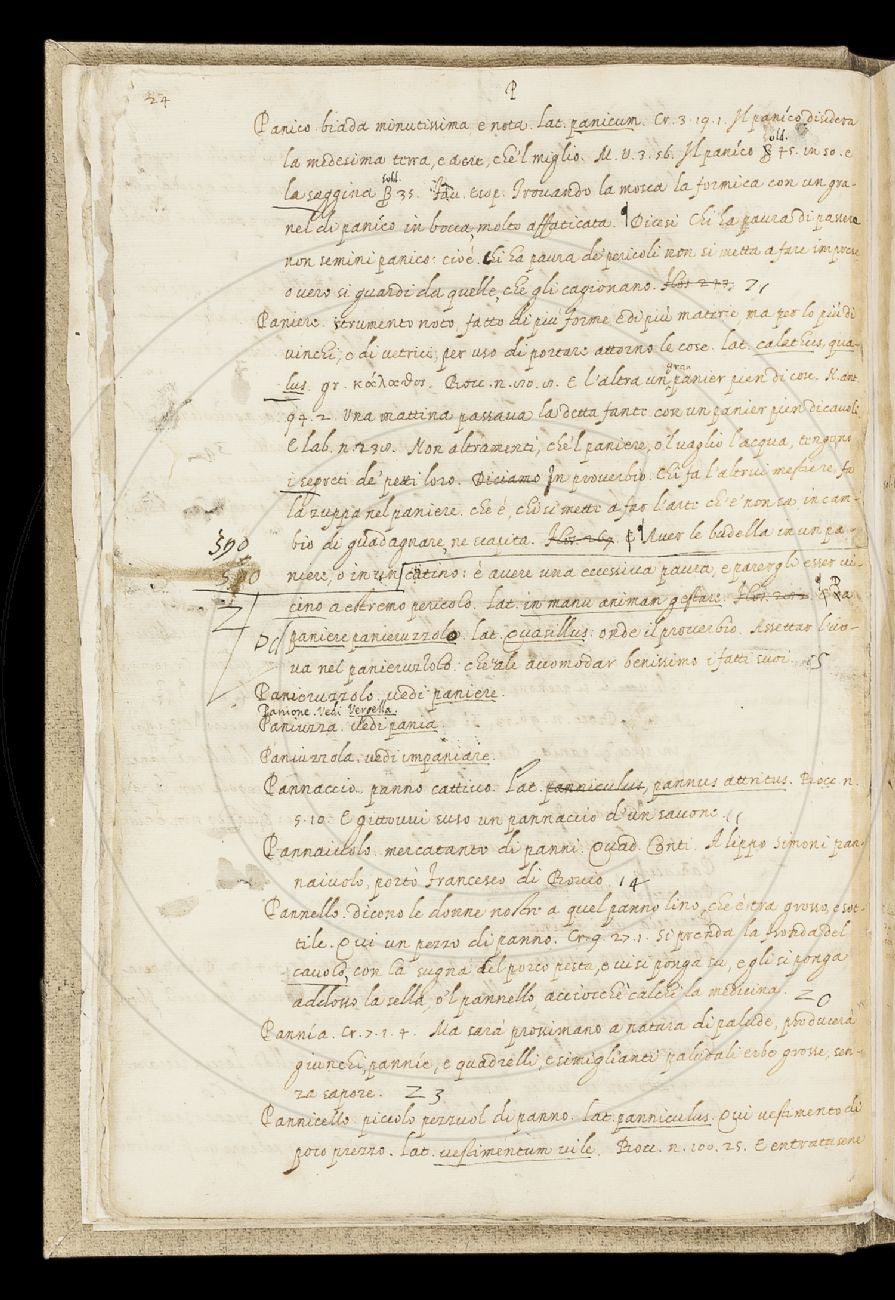 24
P
Panico. biada minutissima e nota. lat. panicum. Cr. 3. 19. 1. Il paníco disidera
la medesima terra, e aere, che'l miglio. M. V. 3. 56. Il paníco sold. 45. in 50. e
la saggina sold. 35. Fav. Esop. Trovando la mosca la formica con un gra-
nel di paníco in bocca, molto affaticata. Dicesi Chi ha paura di passere
non semini panico: cioè chi ha paura de' pericoli non si metta a fare imprese
overo si guardi da quelle, che gli cagionano. 21
Paniere. strumento noto, fatto di più forme e di più materie, ma per lo più di
vinchi, o di vetrici, per uso di portare attorno le cose. lat. calathus, qua-
lus. gr. κάλαθος. Bocc. n. E l'altra un gran panier pien di cose. N. ant.
94. 2. Una mattina passava la detta fante con un panier pien di cavoli.
E lab. n. 238. Non altramenti, che'l paniere, o'l vaglio l'acqua, tengono
i segreti de' petti loro. Diciamo In proverbio. Chi fa l'altrui mestiere, fa
la zuppa nel paniere. che è, chi si mette a far l'arte ch'e' non sa in cam-
bio di guadagnare, ne scapita. Aver le budella in un pa-
590
niere, o in un catino: è avere una eccessiva paura, e parergli esser vi-
500
cino a estremo pericolo. lat. in manu animam gestare. Da
paniere panieruzzolo. lat. quasillus: onde il proverbio. Assettar l'uo-
va nel panieruzzolo: che vale accomodar benissimo i fatti suoi. 15
Panieruzzolo. vedi paniere.
Panione. Vedi Vergella.
Paniuzza. vedi pania.
Paniuzzola. vedi impaniare.
Pannaccio. panno cattivo. lat. panniculus, pannus attritus. Bocc. n.
5. 10. E gittovvi suso un pannaccio d'un saccone. 11
Pannaiuolo. mercatante di panni. Quad. Conti. A lippo Simoni pan-
naiuolo, portò Francesco di Boccio. 14
Pannello. Dicono le donne nostre a quel panno lino, che è tra grosso, e sot-
tile. Qui un pezzo di panno. Cr. 9. 27. 1. Si prenda la fronda del
cavolo, con la sugna del porco pesta, e vi si ponga su, e gli si ponga
addosso la sella, o'l pannello, acciocche calchi la medicina. 20
Pannía. Cr. 7. 1. 4. Ma sarà prossimano a natura di palude, producerà
giunchi, pannie, e quadrelli, e simiglianti paludali erbe grosse, sen-
za sapore. 23
Pannicello. piccolo pezzuol di panno. lat. panniculus. Qui vestimento di
poco prezzo. lat. vestimentum vile. Bocc. n. 100. 25. E entratasene